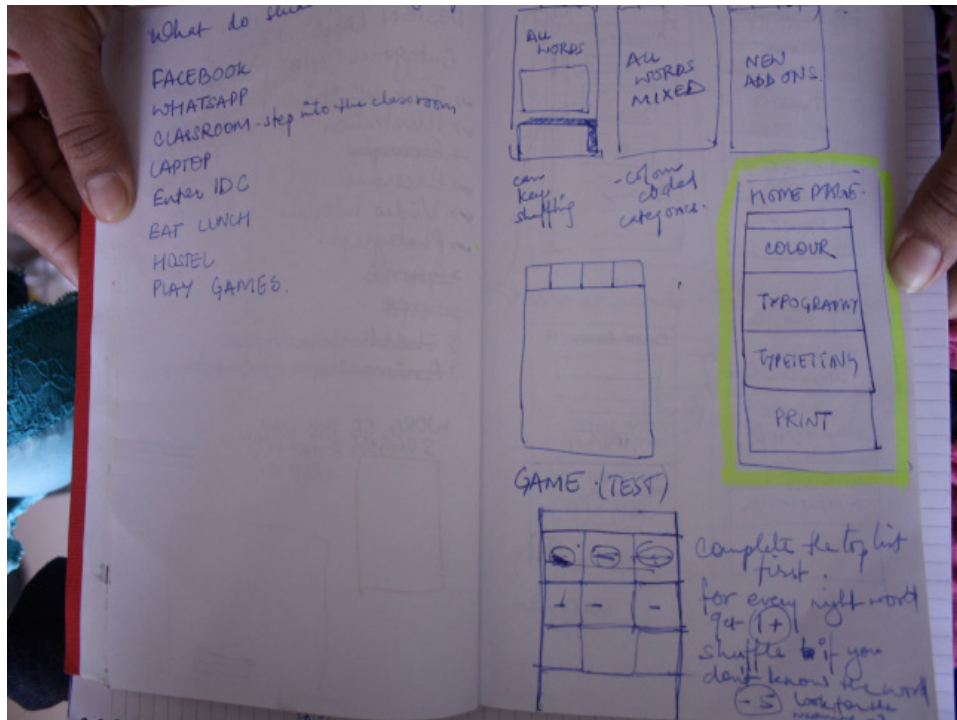 What do
FACEBOOK
WHATSAPP
CLASSROOM - step into the classroom
LAPTOP
Enter IDC
EAT LUNCH
HOSTEL
PLAY GAMES.
ALL WORDS
can keep shuffling
ALL WORDS MIXED
- colour coded categories.
NEW ADD ONS.
HOME PAGE.
COLOUR
TYPOGRAPHY
TYPESETTING
PRINT
GAME (TEST)
complete the top list
first.
for every right word
get 1+
shuffle if you
don't know the word
- 5 look for the